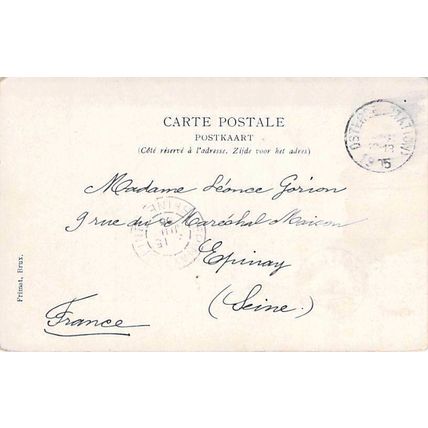 CARTE POSTALE
POSTKAART
(Côté réservé à l'adresse. Zijde voor het adres)
OSTENDE (STATION)
1905
Madame Léonce Gorion
9 rue du Maréchal Maison
Epinay
(Seine)
France
Primat, Brux.